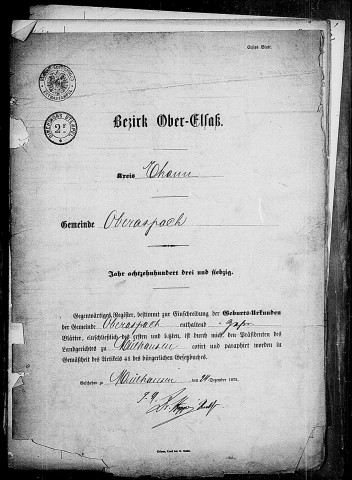 Erstes Blatt.
2 F
Bezirk Ober-Elsaß.
Kreis Thann
Gemeinde Oberaspach
Jahr achtzehnhundert drei und siebzig.
Gegenwärtiges Register, bestimmt zur Einschreibung der Geburts-Urkunden
der Gemeinde Oberaspach enthaltend
Blätter, einschließlich des ersten und letzten, ist durch uns, den Präsidenten des
Landgerichtes zu Mülhausen cotirt und paraphirt worden in
Gemäßheit des Artikels 41 des bürgerlichen Gesetzbuches.
Geschehen zu Mülhausen den 24 Dezember 1872.